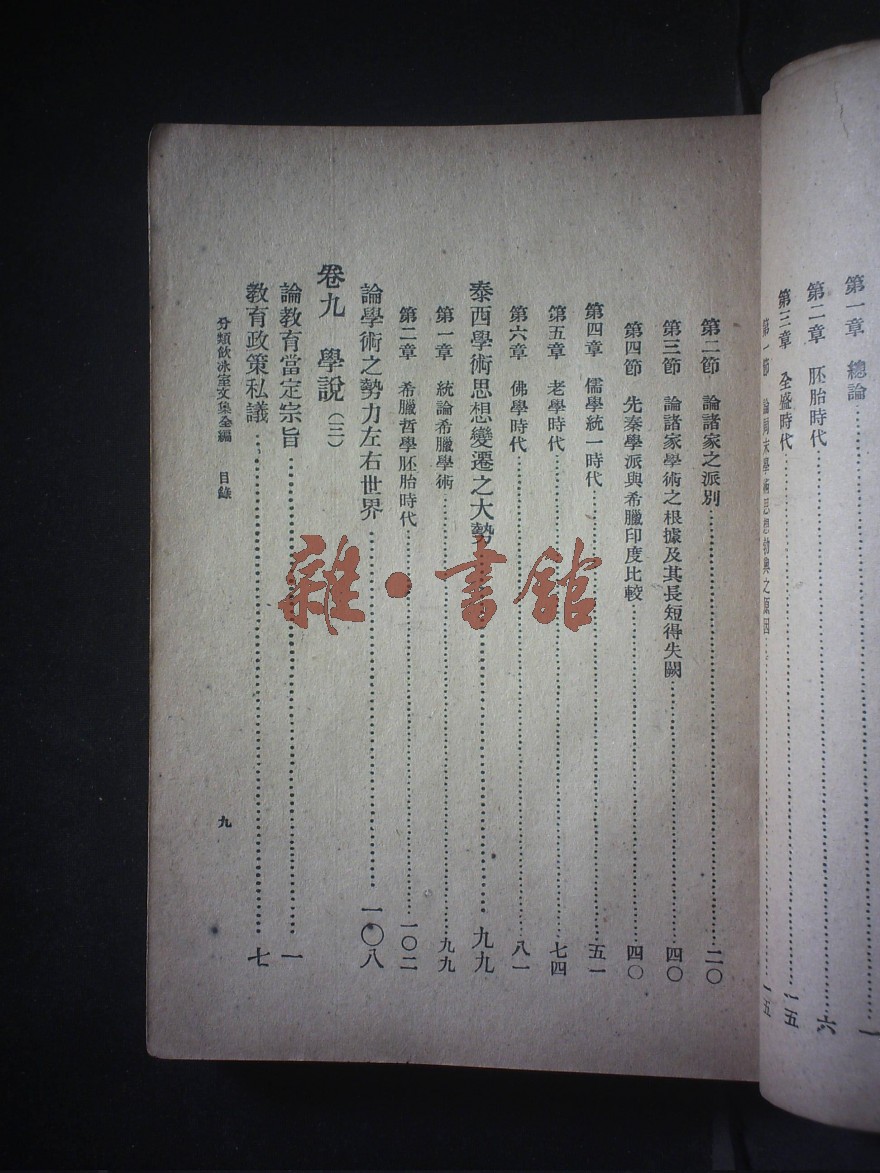 第一章　總論⋯⋯一
第二章　胚胎時代⋯⋯六
第三章　全盛時代⋯⋯一五
第一節　論周末學術思想勃興之原因⋯⋯一五
第二節　論諸家之派別⋯⋯二〇
第三節　論諸家學術之根據及其長短得失闕⋯⋯四〇
第四節　先秦學派與希臘印度比較⋯⋯四〇
第四章　儒學統一時代⋯⋯五一
第五章　老學時代⋯⋯七四
第六章　佛學時代⋯⋯八一
泰西學術思想變遷之大勢⋯⋯九九
第一章　統論希臘學術⋯⋯九九
第二章　希臘哲學胚胎時代⋯⋯一〇二
論學術之勢力左右世界⋯⋯一〇八
卷九　學說（三）
論教育當定宗旨⋯⋯一
教育政策私議⋯⋯七
分類飲冰室文集全編　目錄　九
雜·書館